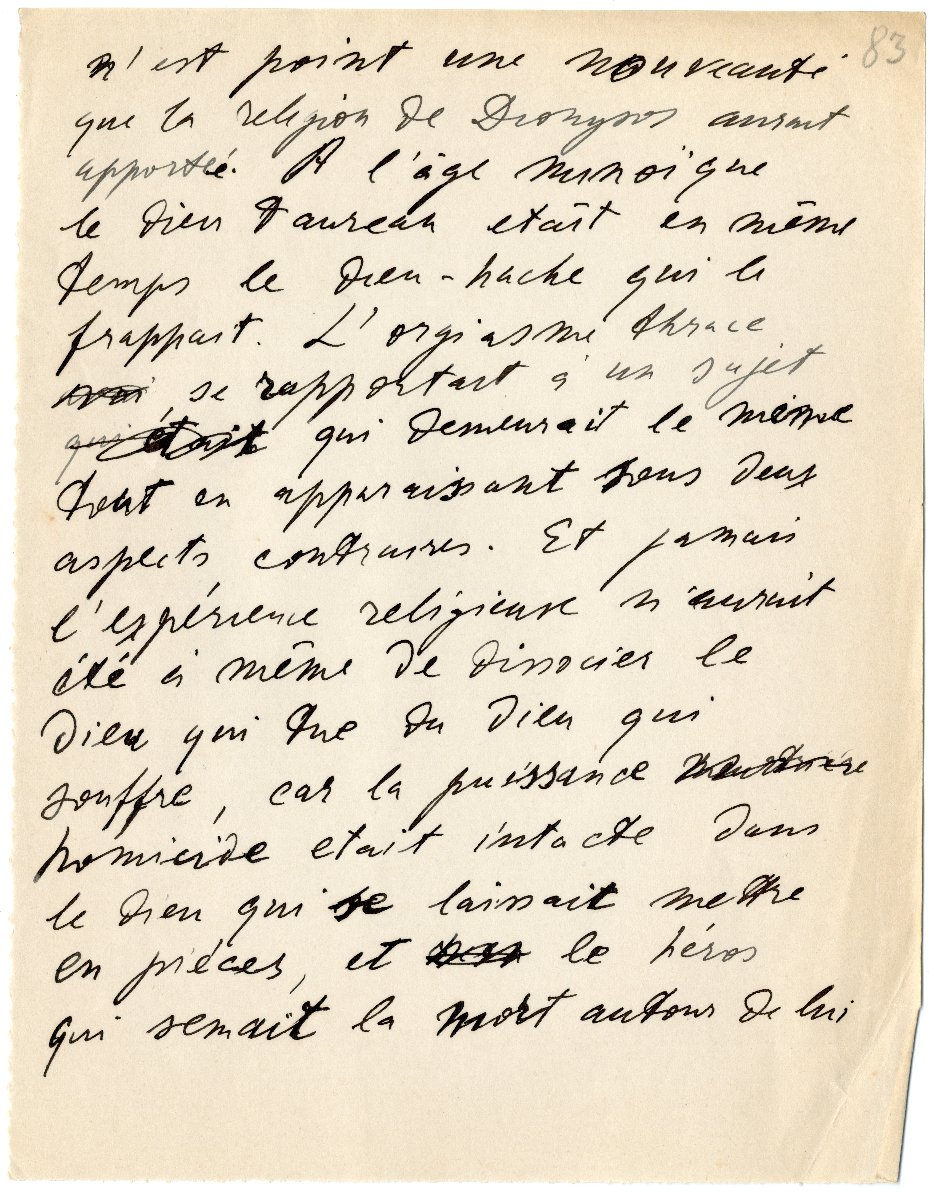 83
n'est point une nouveauté
que la religion de Dionysos aurait
apportée. A l'âge minoïque
le dieu taureau etait en même
temps le dieu-hache qui le
frappait. L'orgiasme thrace
se rapportait à un sujet
qui était qui demeurait le même
tout en apparaissant sous deux
aspects contraires. Et jamais
l'expérience religieuse n'aurait
été à même de dissocier le
Dieu qui tue du Dieu qui
souffre, car la puissance meurtrière
homicide etait intacte dans
le dieu qui se laissait mettre
en pièces, et le héros
qui semait la mort autour de lui